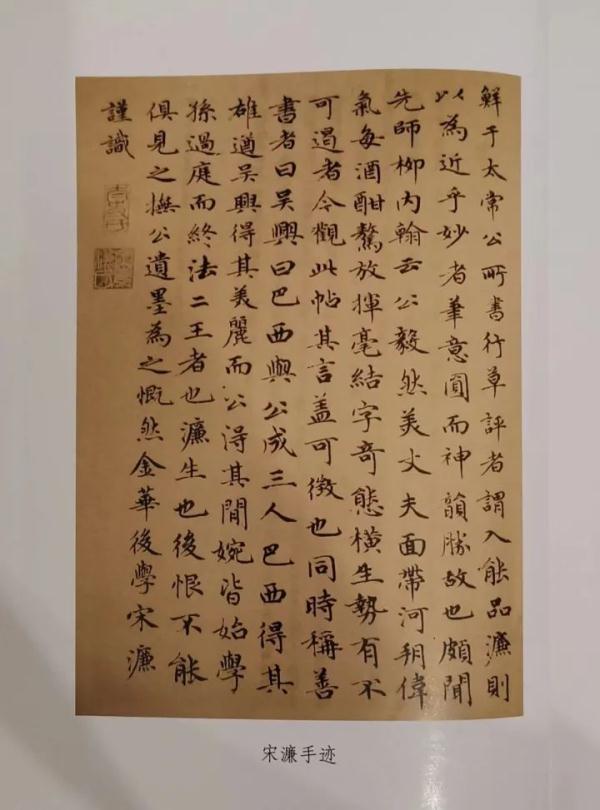 鮮于太常公所書行草評者謂入能品濂則
以為近乎妙者筆意圓而神韻勝故也頗聞
先師柳內翰云公毅然美丈夫面帶河朔偉
氣每酒酣驁放揮毫結字奇態橫生勢有不
可遏者今觀此帖其言蓋可徵也同時稱善
書者曰吳興曰巴西與公成三人巴西得其
雄遒吳興得其美麗而公得其閒婉皆始學
孫過庭而終法二王者也濂生也後恨不能
俱見之撫公遺墨為之慨然金華後學宋濂
謹識
宋濂手迹